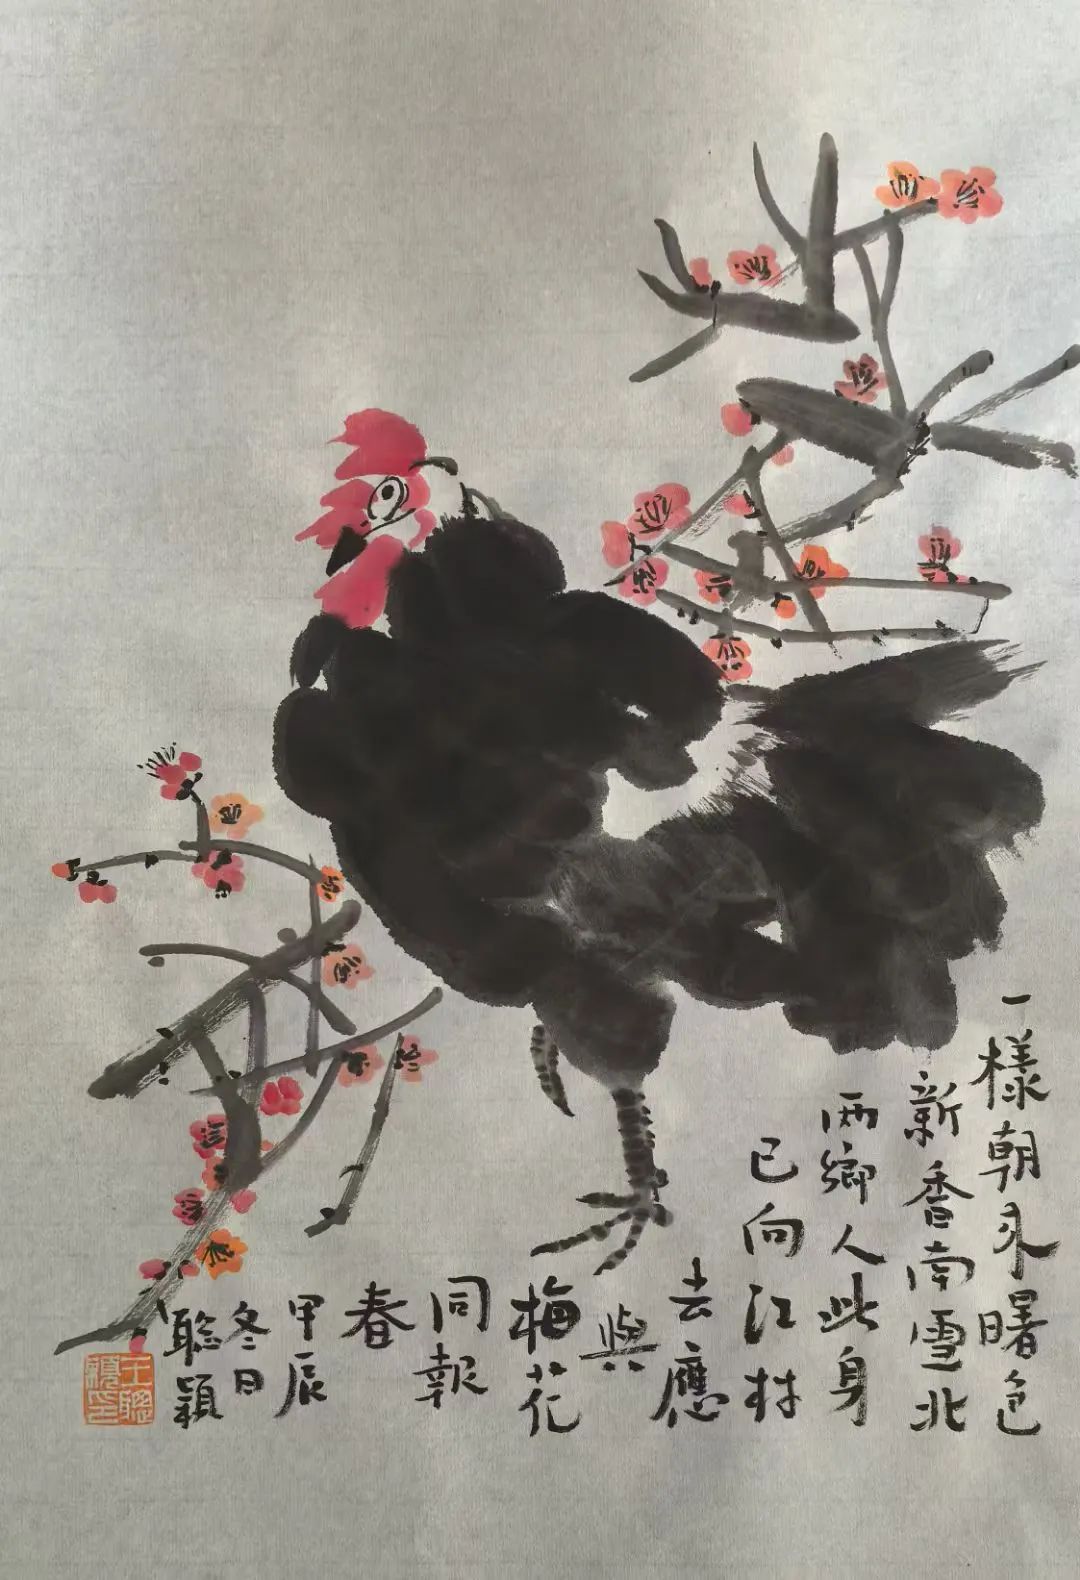 一樣朝来曙色
新香南雪北
兩鄉人此身
已向江村
去應
與
梅花
同報
春
甲辰
冬日
聰穎
王聰
穎印